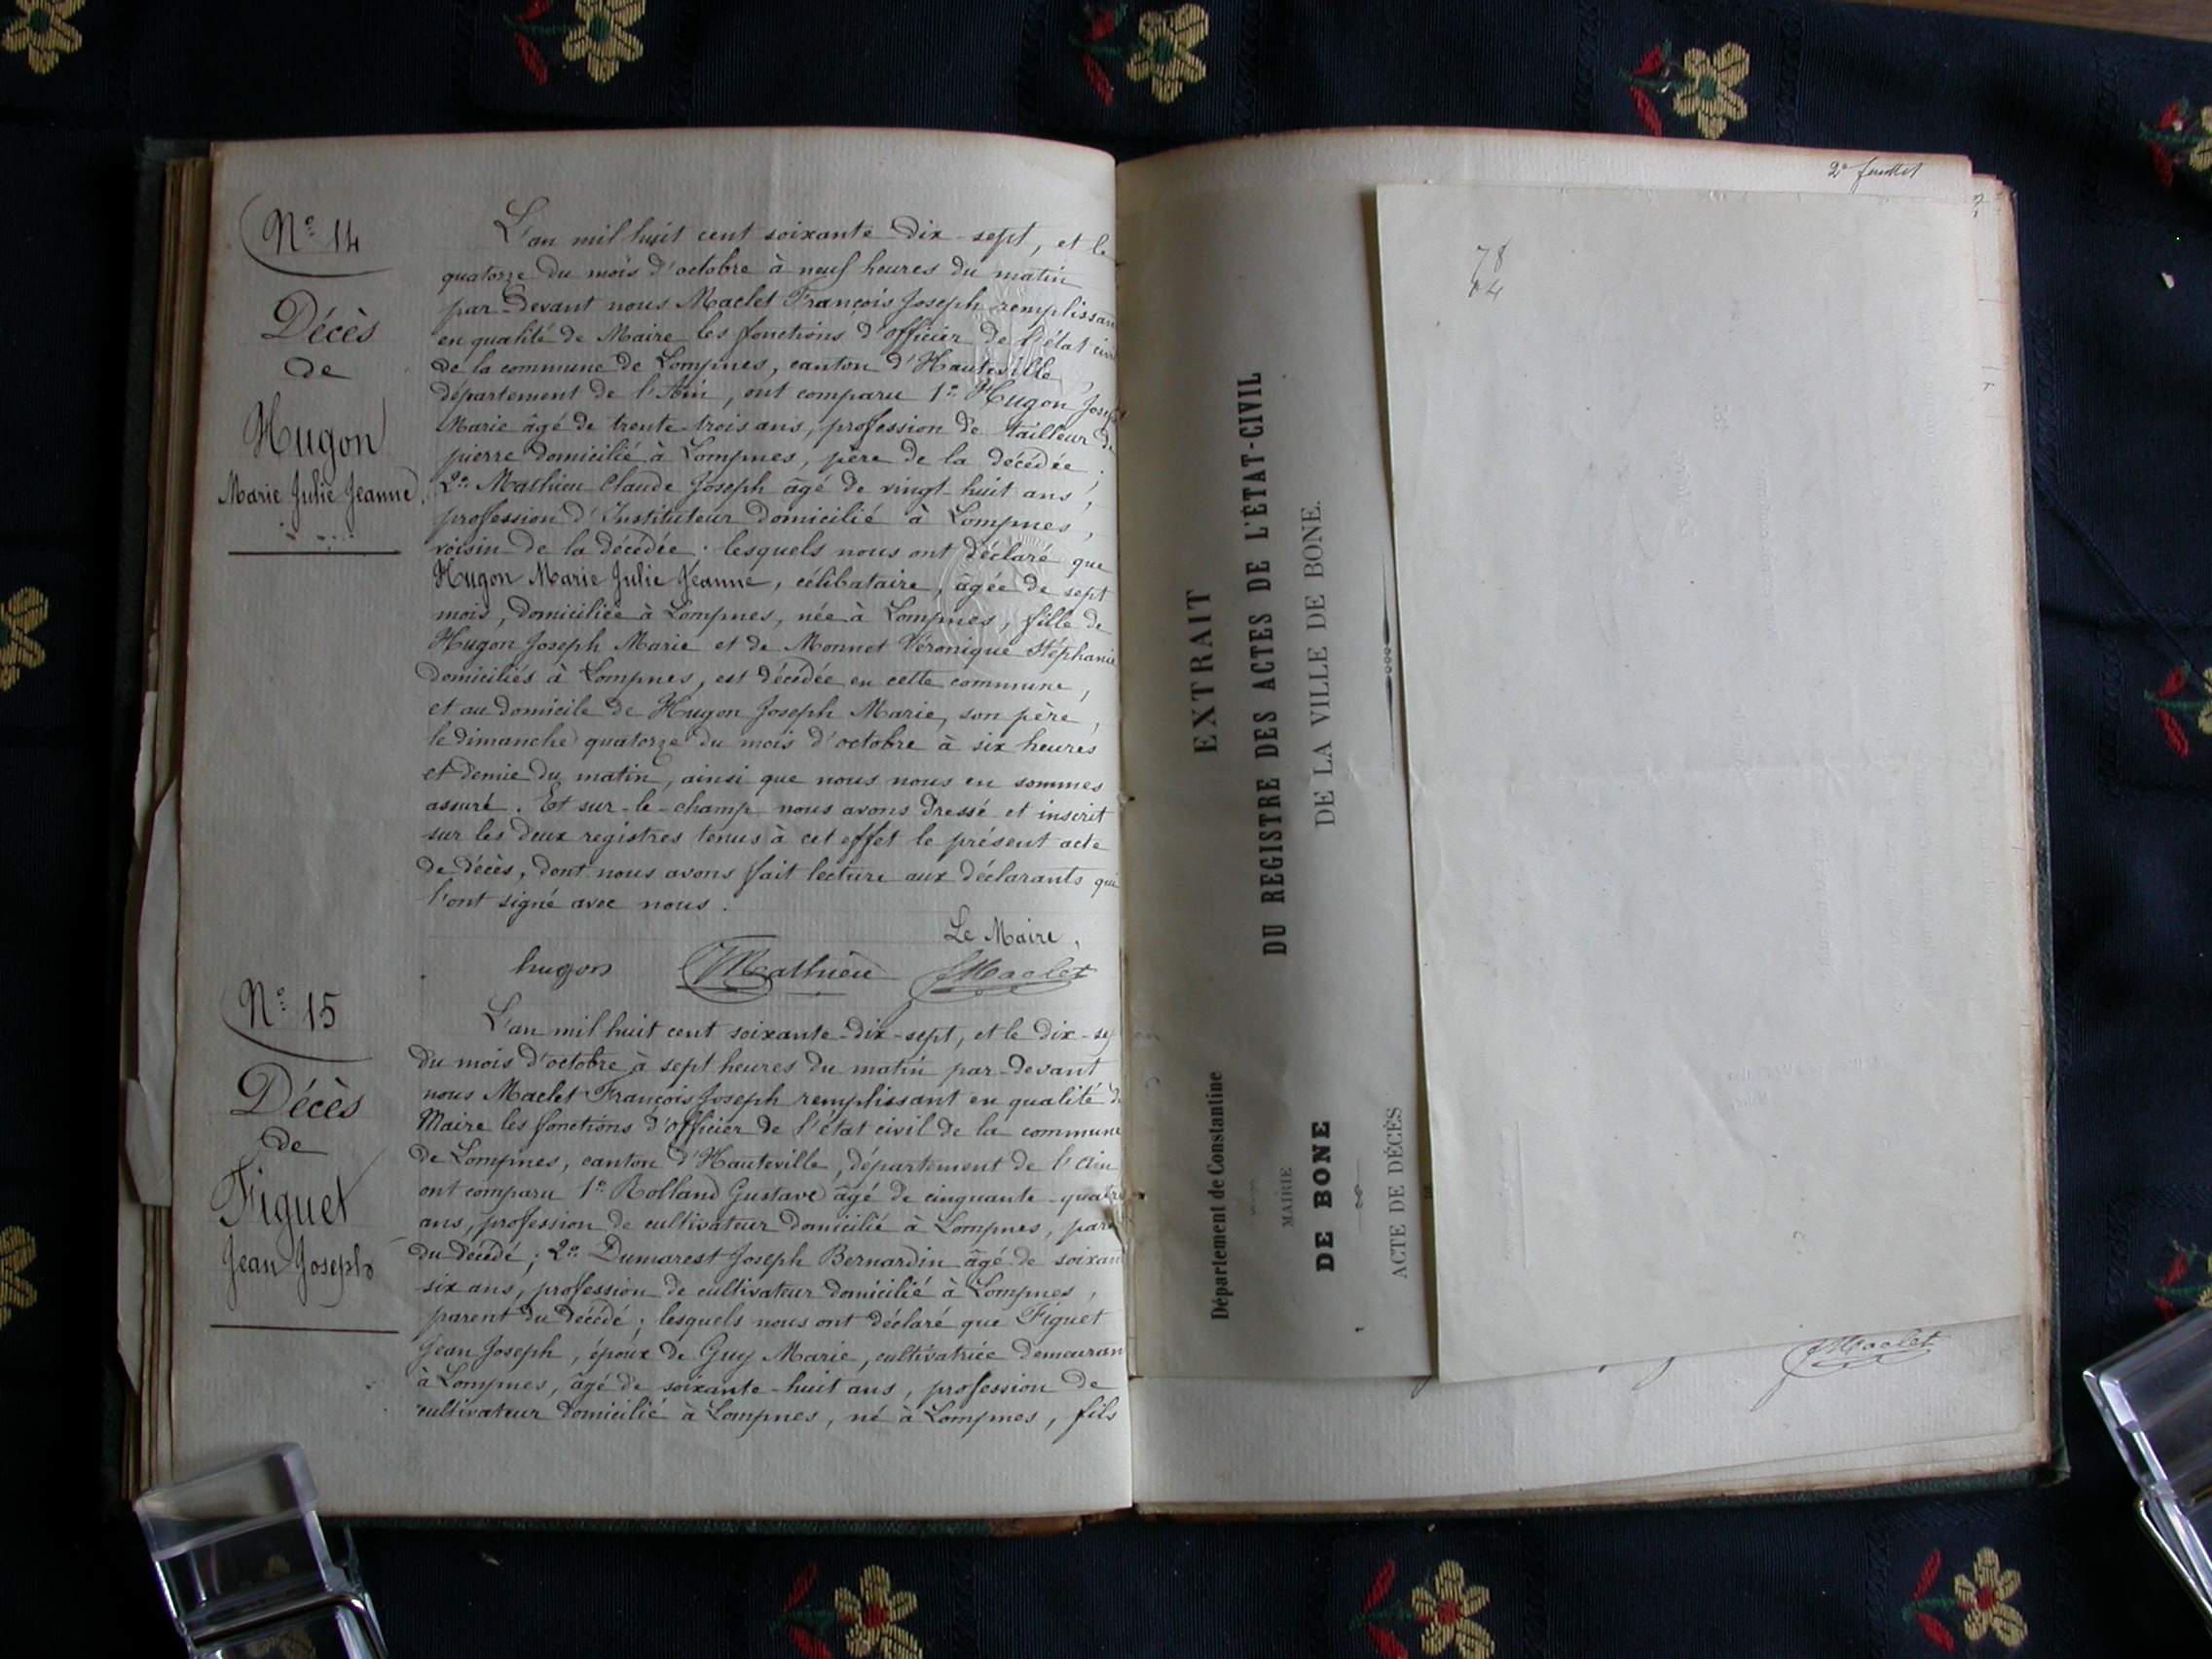 N° 14
Décès
de
Hugon
Marie Julie Jeanne.
L'an mil huit cent soixante dix-sept, et le
quatorze du mois d'octobre à neuf heures du matin
par-devant nous Maclet François Joseph remplissan
en qualité de Maire les fonctions d'officier de l'état civil
de la commune de Lompnes, canton d'Hauteville,
département de l'Ain, ont comparu 1° Hugon Joseph
Marie âgé de trente-trois ans, profession de tailleur de
pierre domicilié à Lompnes, père de la décédée ;
2° Mathieu Claude Joseph âgé de vingt-huit ans,
profession d'Instituteur domicilié à Lompnes,
voisin de la décédée ; lesquels nous ont déclaré que
Hugon Marie Julie Jeanne, célibataire, âgée de sept
mois, domiciliée à Lompnes, née à Lompnes, fille de
Hugon Joseph Marie et de Monnet Véronique Stéphanie
domiciliés à Lompnes, est décédée en cette commune,
et au domicile de Hugon Joseph Marie, son père,
le dimanche quatorze du mois d'octobre à six heures
et demie du matin, ainsi que nous nous en sommes
assuré. Et sur-le-champ nous avons dressé et inscrit
sur les deux registres tenus à cet effet le présent acte
de décès, dont nous avons fait lecture aux déclarants qui
l'ont signé avec nous.
Le Maire,
hugon Mathieu JMaclet
N° 15
Décès
de
Figuet
Jean Joseph
L'an mil huit cent soixante-dix-sept, et le dix-sep
du mois d'octobre à sept heures du matin par-devant
nous Maclet François Joseph remplissant en qualité de
Maire les fonctions d'officier de l'état civil de la commune
de Lompnes, canton d'Hauteville, département de l'Ain
ont comparu 1° Rolland Gustave âgé de cinquante-quatre
ans, profession de cultivateur domicilié à Lompnes, pare
du décédé ; 2° Dumarest Joseph Bernardin âgé de soixan
six ans, profession de cultivateur domicilié à Lompnes,
parent du décédé ; lesquels nous ont déclaré que Figuet
Jean Joseph, époux de Guy Marie, cultivatrice demeuran
à Lompnes, âgé de soixante-huit ans, profession de
cultivateur domicilié à Lompnes, né à Lompnes, fils
2e feuillet
EXTRAIT
DU REGISTRE DES ACTES DE L'ÉTAT-CIVIL
DE LA VILLE DE BONE.
Département de Constantine
MAIRIE
DE BONE
ACTE DE DÉCÈS
78
64
JMaclet